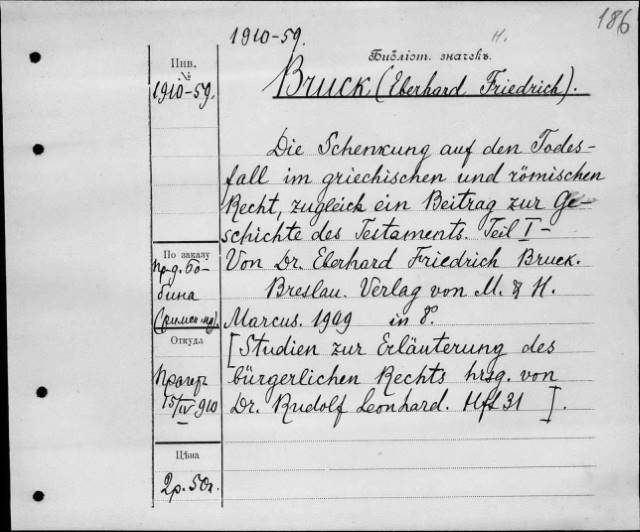 186
1910-59.
н.
Библіот. значекъ.
Инв.
№
1910-59.
Bruck (Eberhard Friedrich).
Die Schenkung auf den Todes-
fall im griechischen und römischen
Recht, zugleich ein Beitrag zur Ge-
schichte des Testaments. Teil I-
По заказу
пр-д. Бо-
бина
Von Dr. Eberhard Friedrich Bruck.
Breslau. Verlag von M. & H.
Marcus. 1909 in 8º.
Откуда
[Studien zur Erläuterung des
bürgerlichen Rechts hrsg. von
Dr. Rudolf Leonhard. Hft 31 ].
Прагеръ
15/IV 910
Цѣна
2р. 50г.